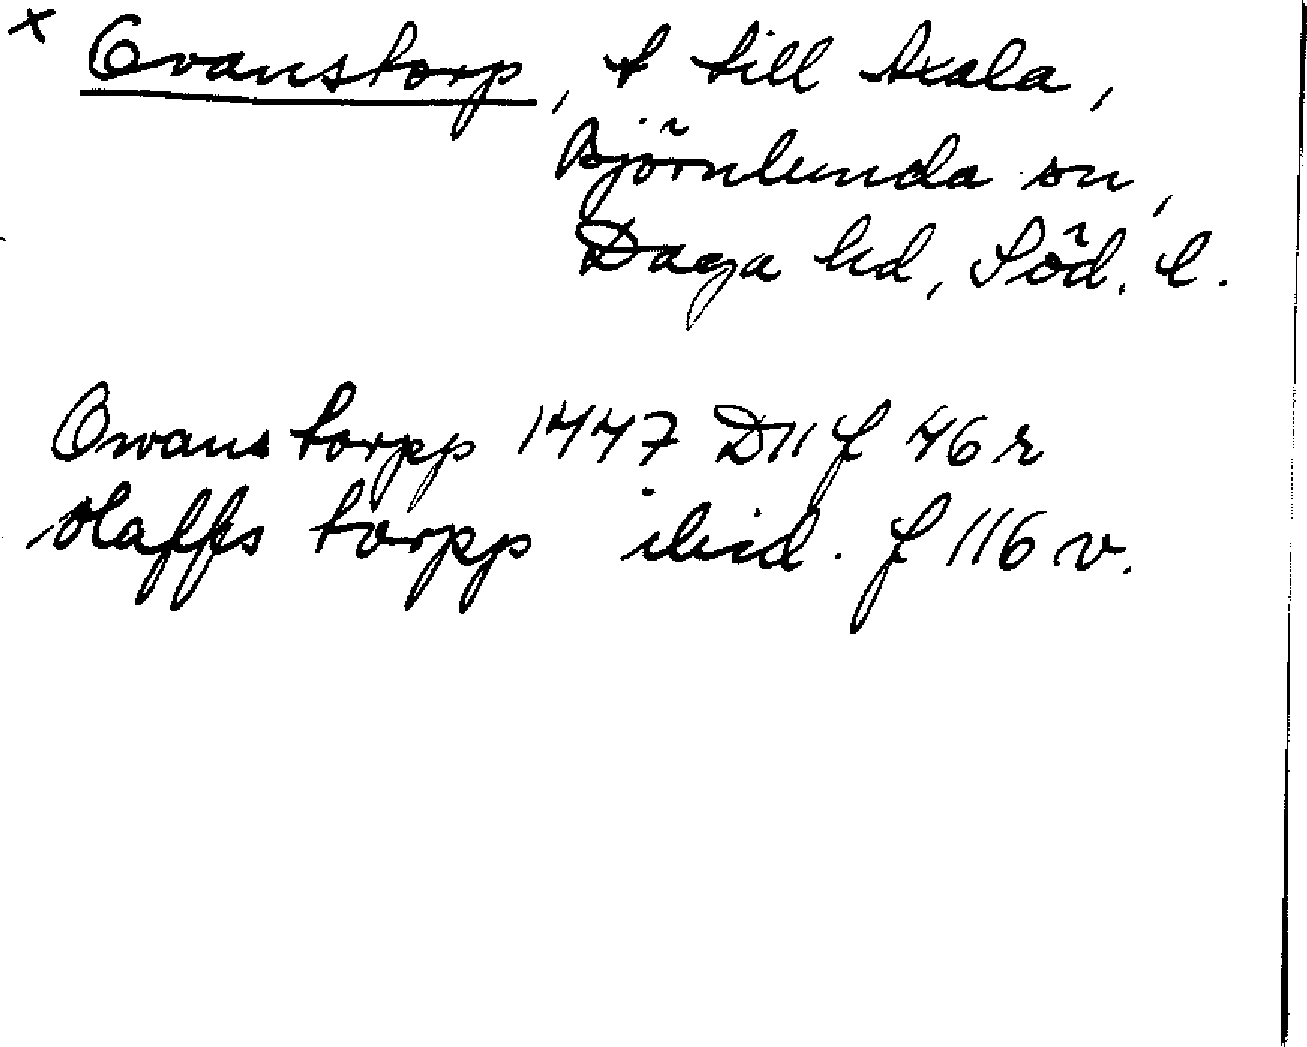 x Ovanstorp, t till Axala,
Björnlunda sn,
Daga hd, Söd. l.
Owans torpp 1447 D11 f 46 r
olaffs torpp ibid. f 116 v.